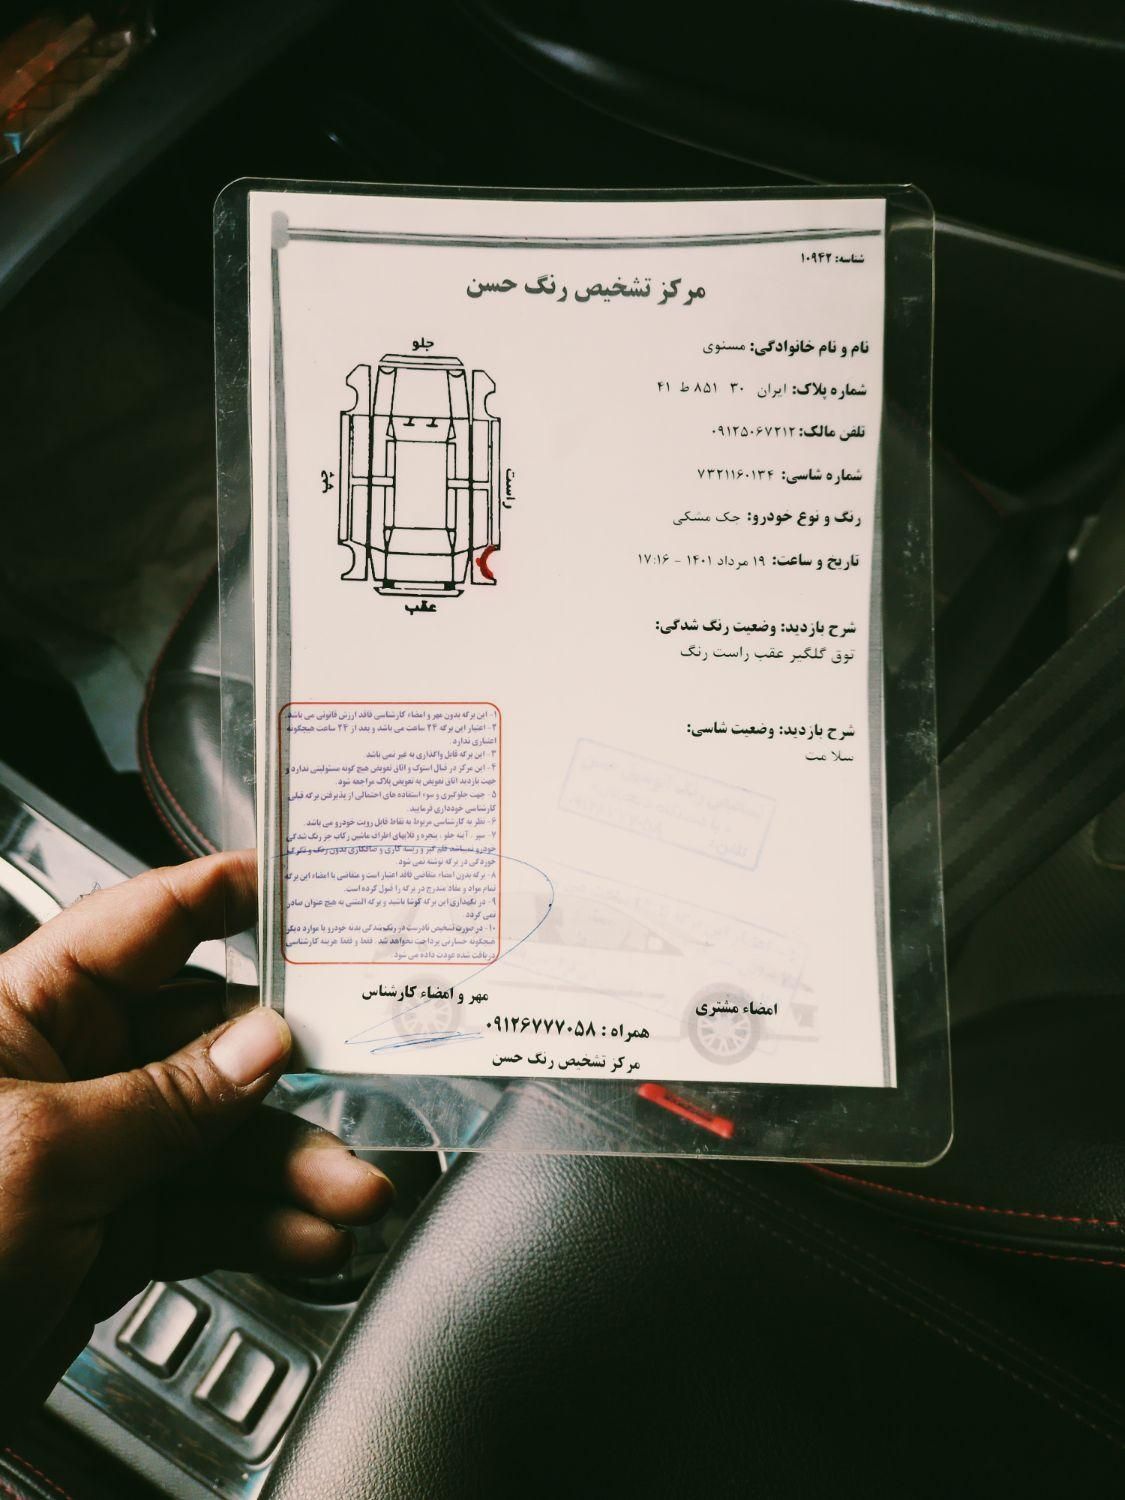 شناسه: ۱۰۹۴۲
مرکز تشخیص رنگ حسن
نام و نام خانوادگی: مسنوی
شماره پلاک: ایران ۳۰ ۸۵۱ ط ۴۱
تلفن مالک: ۰۹۱۲۵۰۶۷۲۱۲
شماره شاسی: ۷۳۲۱۱۶۰۱۳۴
رنگ و نوع خودرو: جک مشکی
تاریخ و ساعت: ۱۹ مرداد ۱۴۰۱ - ۱۷:۱۶
جلو
چپ
راست
عقب
شرح بازدید: وضعیت رنگ شدگی:
توق گلگیر عقب راست رنگ
شرح بازدید: وضعیت شاسی:
سلا مت
۱- این برگه بدون مهر و امضاء کارشناسی فاقد ارزش قانونی می باشد.
۲- اعتبار این برگه ۲۴ ساعت می باشد و بعد از ۲۴ ساعت هیچگونه
اعتباری ندارد.
۳- این برگه قابل واگذاری به غیر نمی باشد
۴- این مرکز در قبال استوک و اتاق تعویض هیچ گونه مسئولیتی ندارد و
جهت بازدید اتاق تعویض به تعویض پلاک مراجعه شود.
۵- جهت جلوگیری و سوء استفاده های احتمالی از پذیرفتن برگه قبلی
کارشناسی خودداری فرمایید.
۶- نظر به کارشناسی مربوط به نقاط قابل رویت خودرو می باشد.
۷- سپر . آینه جلو . پنجره و قابهای اطراف ماشین رکاب جز رنگ شدگی
خودرو نمیباشد قلم گیر و ریسه کاری و صافکاری بدون رنگ و تگرگ
خوردگی در برگه نوشته نمی شود.
۸- برگه بدون امضاء متقاضی فاقد اعتبار است و متقاضی با امضاء این برگه
تمام مواد و مفاد مندرج در برگه را قبول کرده است.
۹- در نگهداری این برگه کوشا باشید و برگه المثنی به هیچ عنوان صادر
نمی گردد.
۱۰- در صورت تشخیص نادرست در رنگ شدگی بدنه خودرو یا موارد دیگر
هیچگونه خسارتی پرداخت نخواهد شد . فقط و فقط هزینه کارشناسی
دریافت شده عودت داده می شود.
مهر و امضاء کارشناس
امضاء مشتری
همراه : ۰۹۱۲۶۷۷۷۰۵۸
مرکز تشخیص رنگ حسن